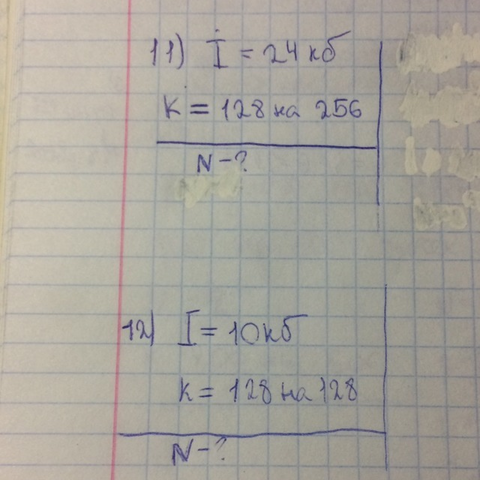 11) I = 24 кб
K = 128 на 256
N - ?
12) I = 10 кб
K = 128 на 128
N - ?